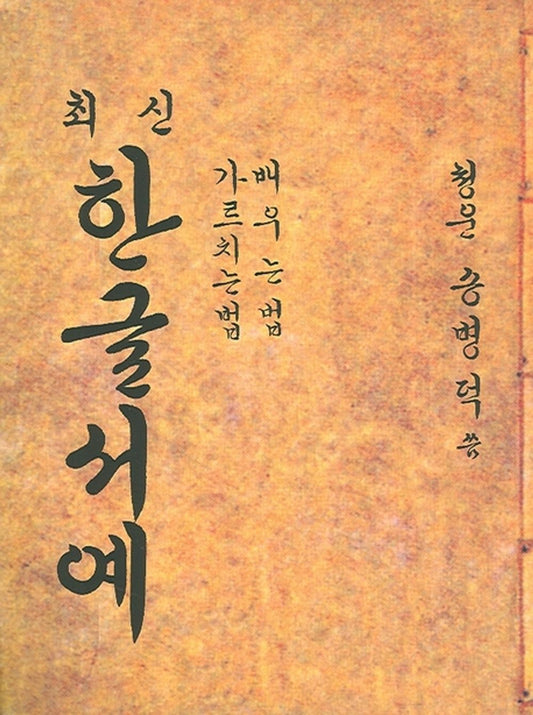 최신
한글서예
배우는 법
가르치는 법
청운 송병덕 씀